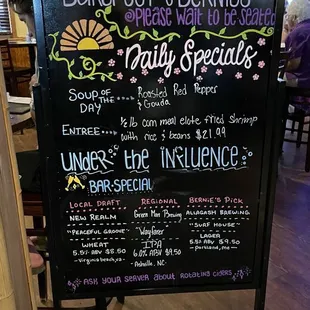 Barefoot Bernies
*please wait to be seated
Daily Specials
Soup of the Day .... Roasted Red Pepper & Gouda
Entree .... 1/2 lb corn meal
fried shrimp
with rice & beans $21.99
Under the Influence
BAR SPECIAL
LOCAL DRAFT
NEW REALM
"PEACEFUL GROOVE"
WHEAT
5.5% ABV $8.50
-Virginia beach, va-
REGIONAL
Green Man Brewing
"Wayfarer"
IPA
6.0% ABV $9.50
Asheville, NC.
BERNIE'S PICK
ALLAGASH BREWING
"SURF HOUSE"
LAGER
5.5% ABV $9.50
-portland, me
*ASK YOUR SERVER ABOUT ROTATING CIDERS